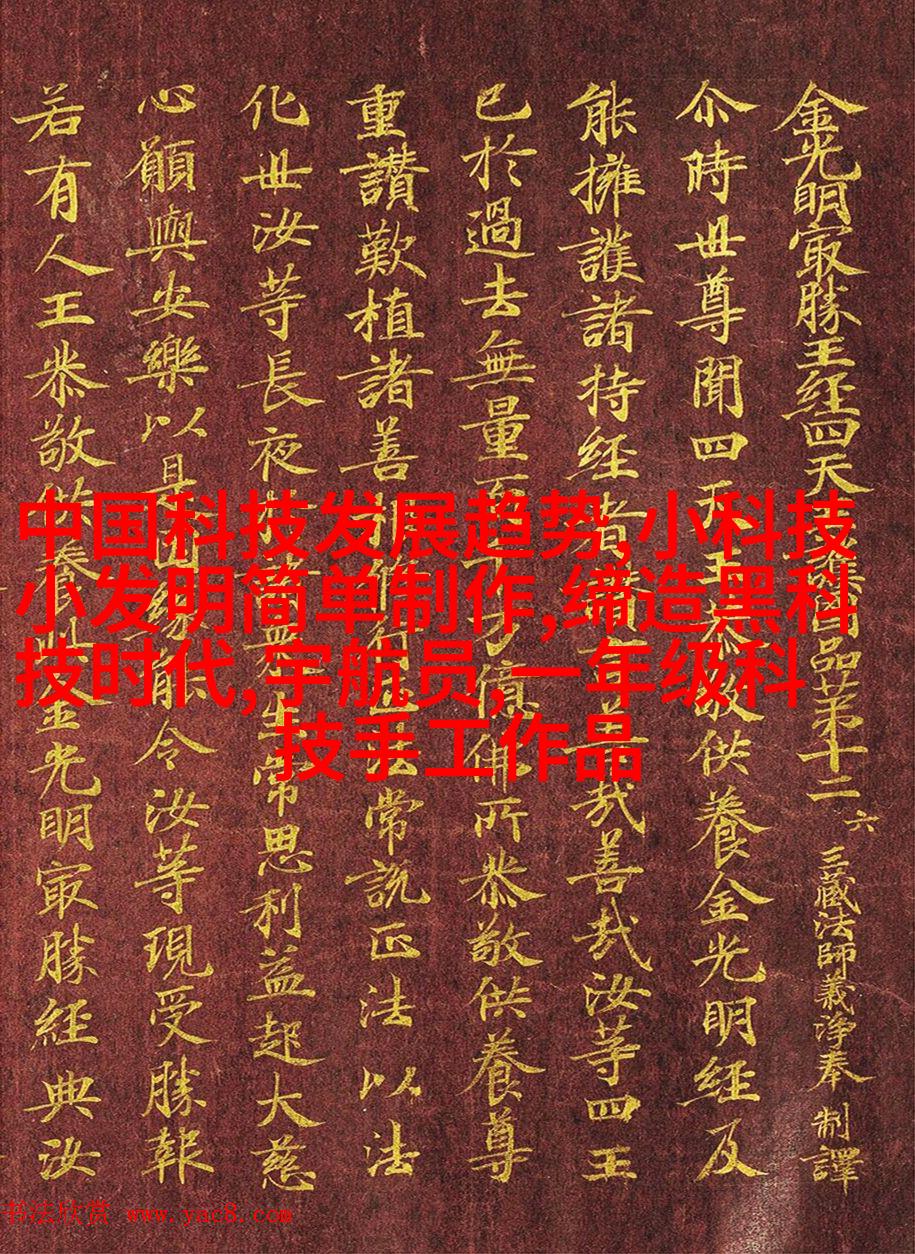 金光明㝡勝王经四天護國品苐十二 六 三藏法師義淨奉 制譯
尒時世尊聞四天王恭敬供養金光明經及
能擁護諸持经者善哉善哉汝等四王
已於過去無量百千万億佛所恭敬供養尊
重讚歎植諸善根常說正法以法
化世汝等長夜生常思利益起大慈
心願與安樂以是因緣能令汝等現受勝報
若有人王恭敬供養金光明㝡勝經典汝
中国科技发展趋势,小科技
小发明简单制作,缔造黑科
技时代,宇航员,一年级科
技手工作品
书法欣赏 www.yac8.com